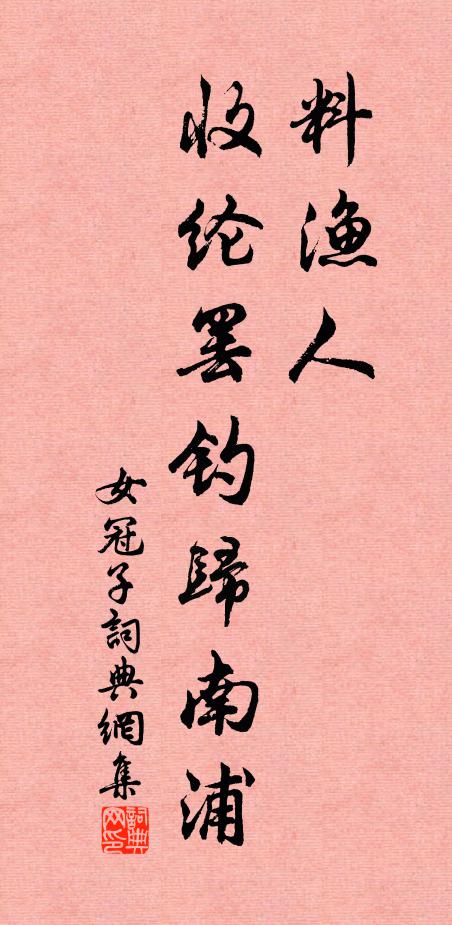 料渔人
收纶罢钓歸南浦
女冠子詞典網集
詞典
网印